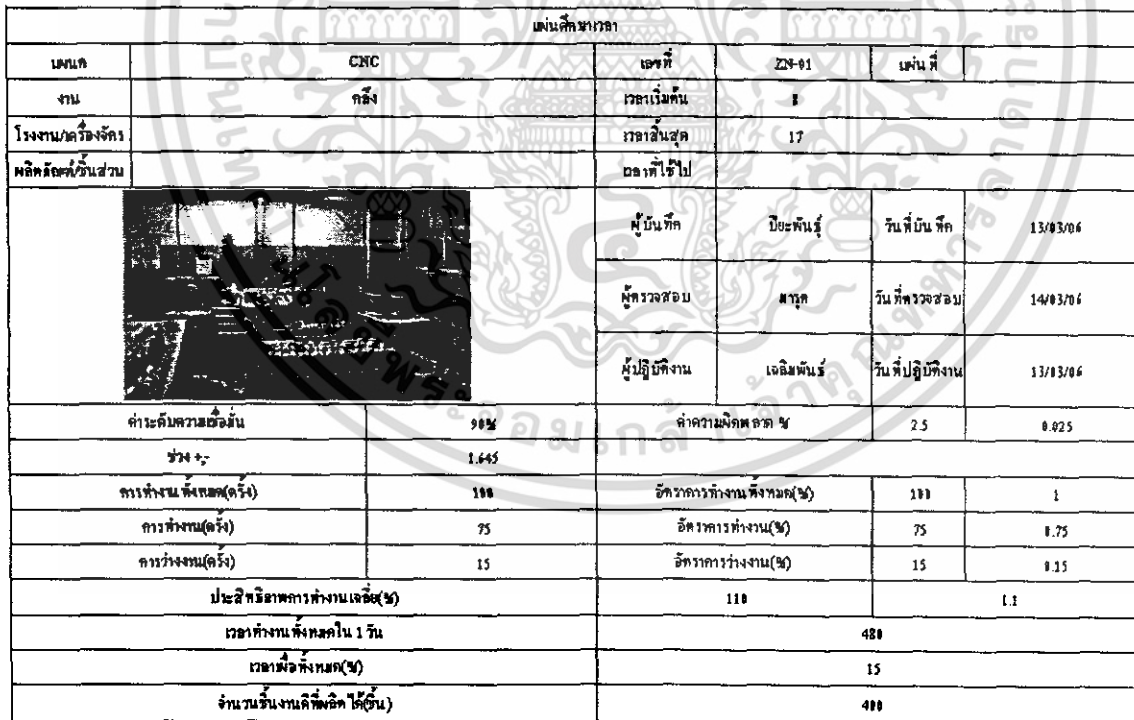 แผ่นศึกษาเวลา
แผนก CNC เลขที่ ZN-01 แผ่นที่
งาน กลึง เวลาเริ่มต้น 8
โรงงาน/เครื่องจักร เวลาสิ้นสุด 17
ผลิตภัณฑ์/ชิ้นส่วน เวลาที่ใช้ไป
ผู้บันทึก ปิยะพันธุ์ วันที่บันทึก 13/03/06
ผู้ตรวจสอบ มารุต วันที่ตรวจสอบ 14/03/06
ผู้ปฏิบัติงาน เฉลิมพันธ์ วันที่ปฏิบัติงาน 13/03/06
ค่าระดับความเชื่อมั่น 90% ค่าความผิดพลาด % 2.5 0.025
ช่วง +,- 1.645
การทำงานทั้งหมด(ครั้ง) 100 อัตราการทำงานทั้งหมด(%) 100 1
การทำงาน(ครั้ง) 75 อัตราการทำงาน(%) 75 0.75
การว่างงาน(ครั้ง) 15 อัตราการว่างงาน(%) 15 0.15
ประสิทธิภาพการทำงานเฉลี่ย(%) 110 1.1
เวลาทำงานทั้งหมดใน 1 วัน 480
เวลาเผื่อทั้งหมด(%) 15
จำนวนชิ้นงานดีที่ผลิตได้(ชิ้น) 400